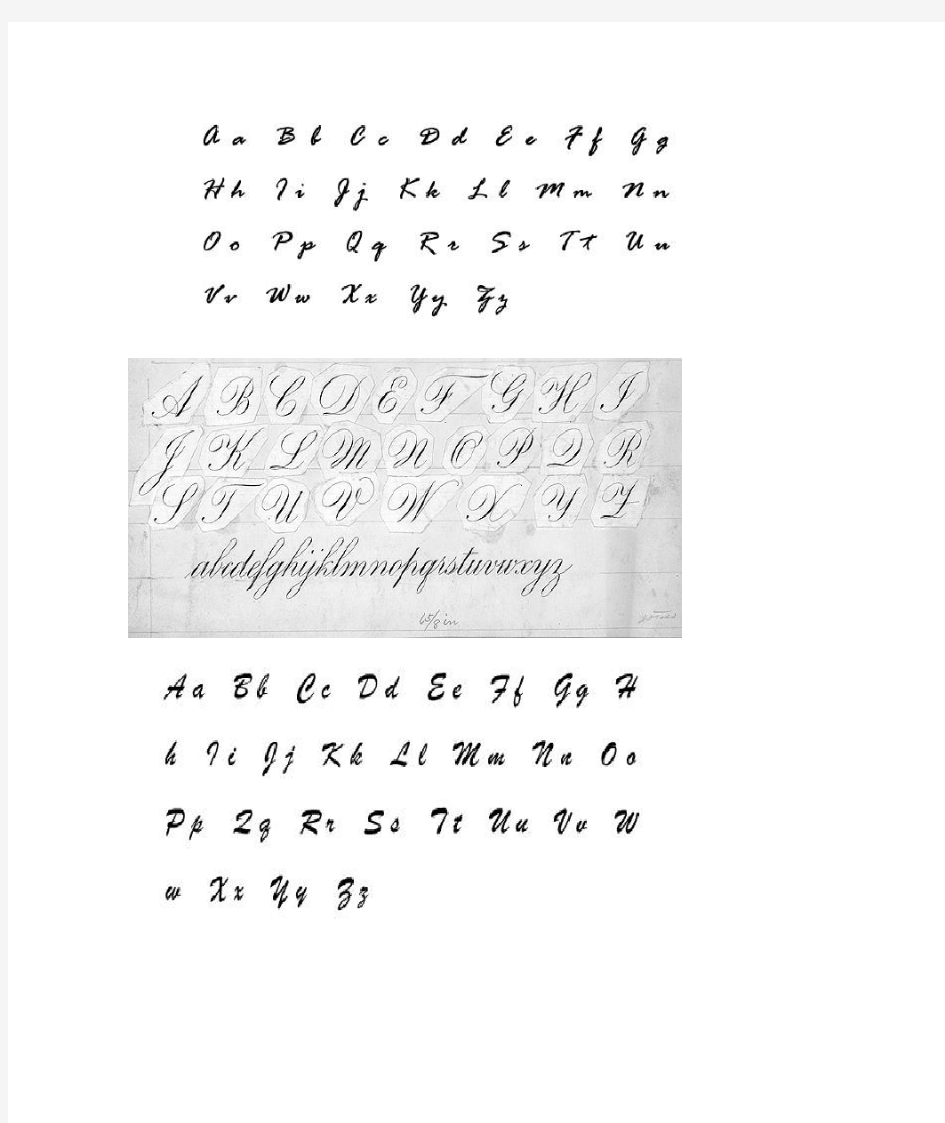 A a B b C c D d E e F f G g
H h I i J j K k L l M m N n
O o P p Q q R r S s T t U u
V v W w X x Y y Z z
A B C D E F G H I
J K L M N O P Q R
S T U V W X Y Z
abcdefghijklmnopqrstuvwxyz
6 5/8 in
Aa Bb Cc Dd Ee Ff Gg H
h Ii Jj Kk Ll Mm Nn Oo
Pp Qq Rr Ss Tt Uu Vv W
w Xx Yy Zz